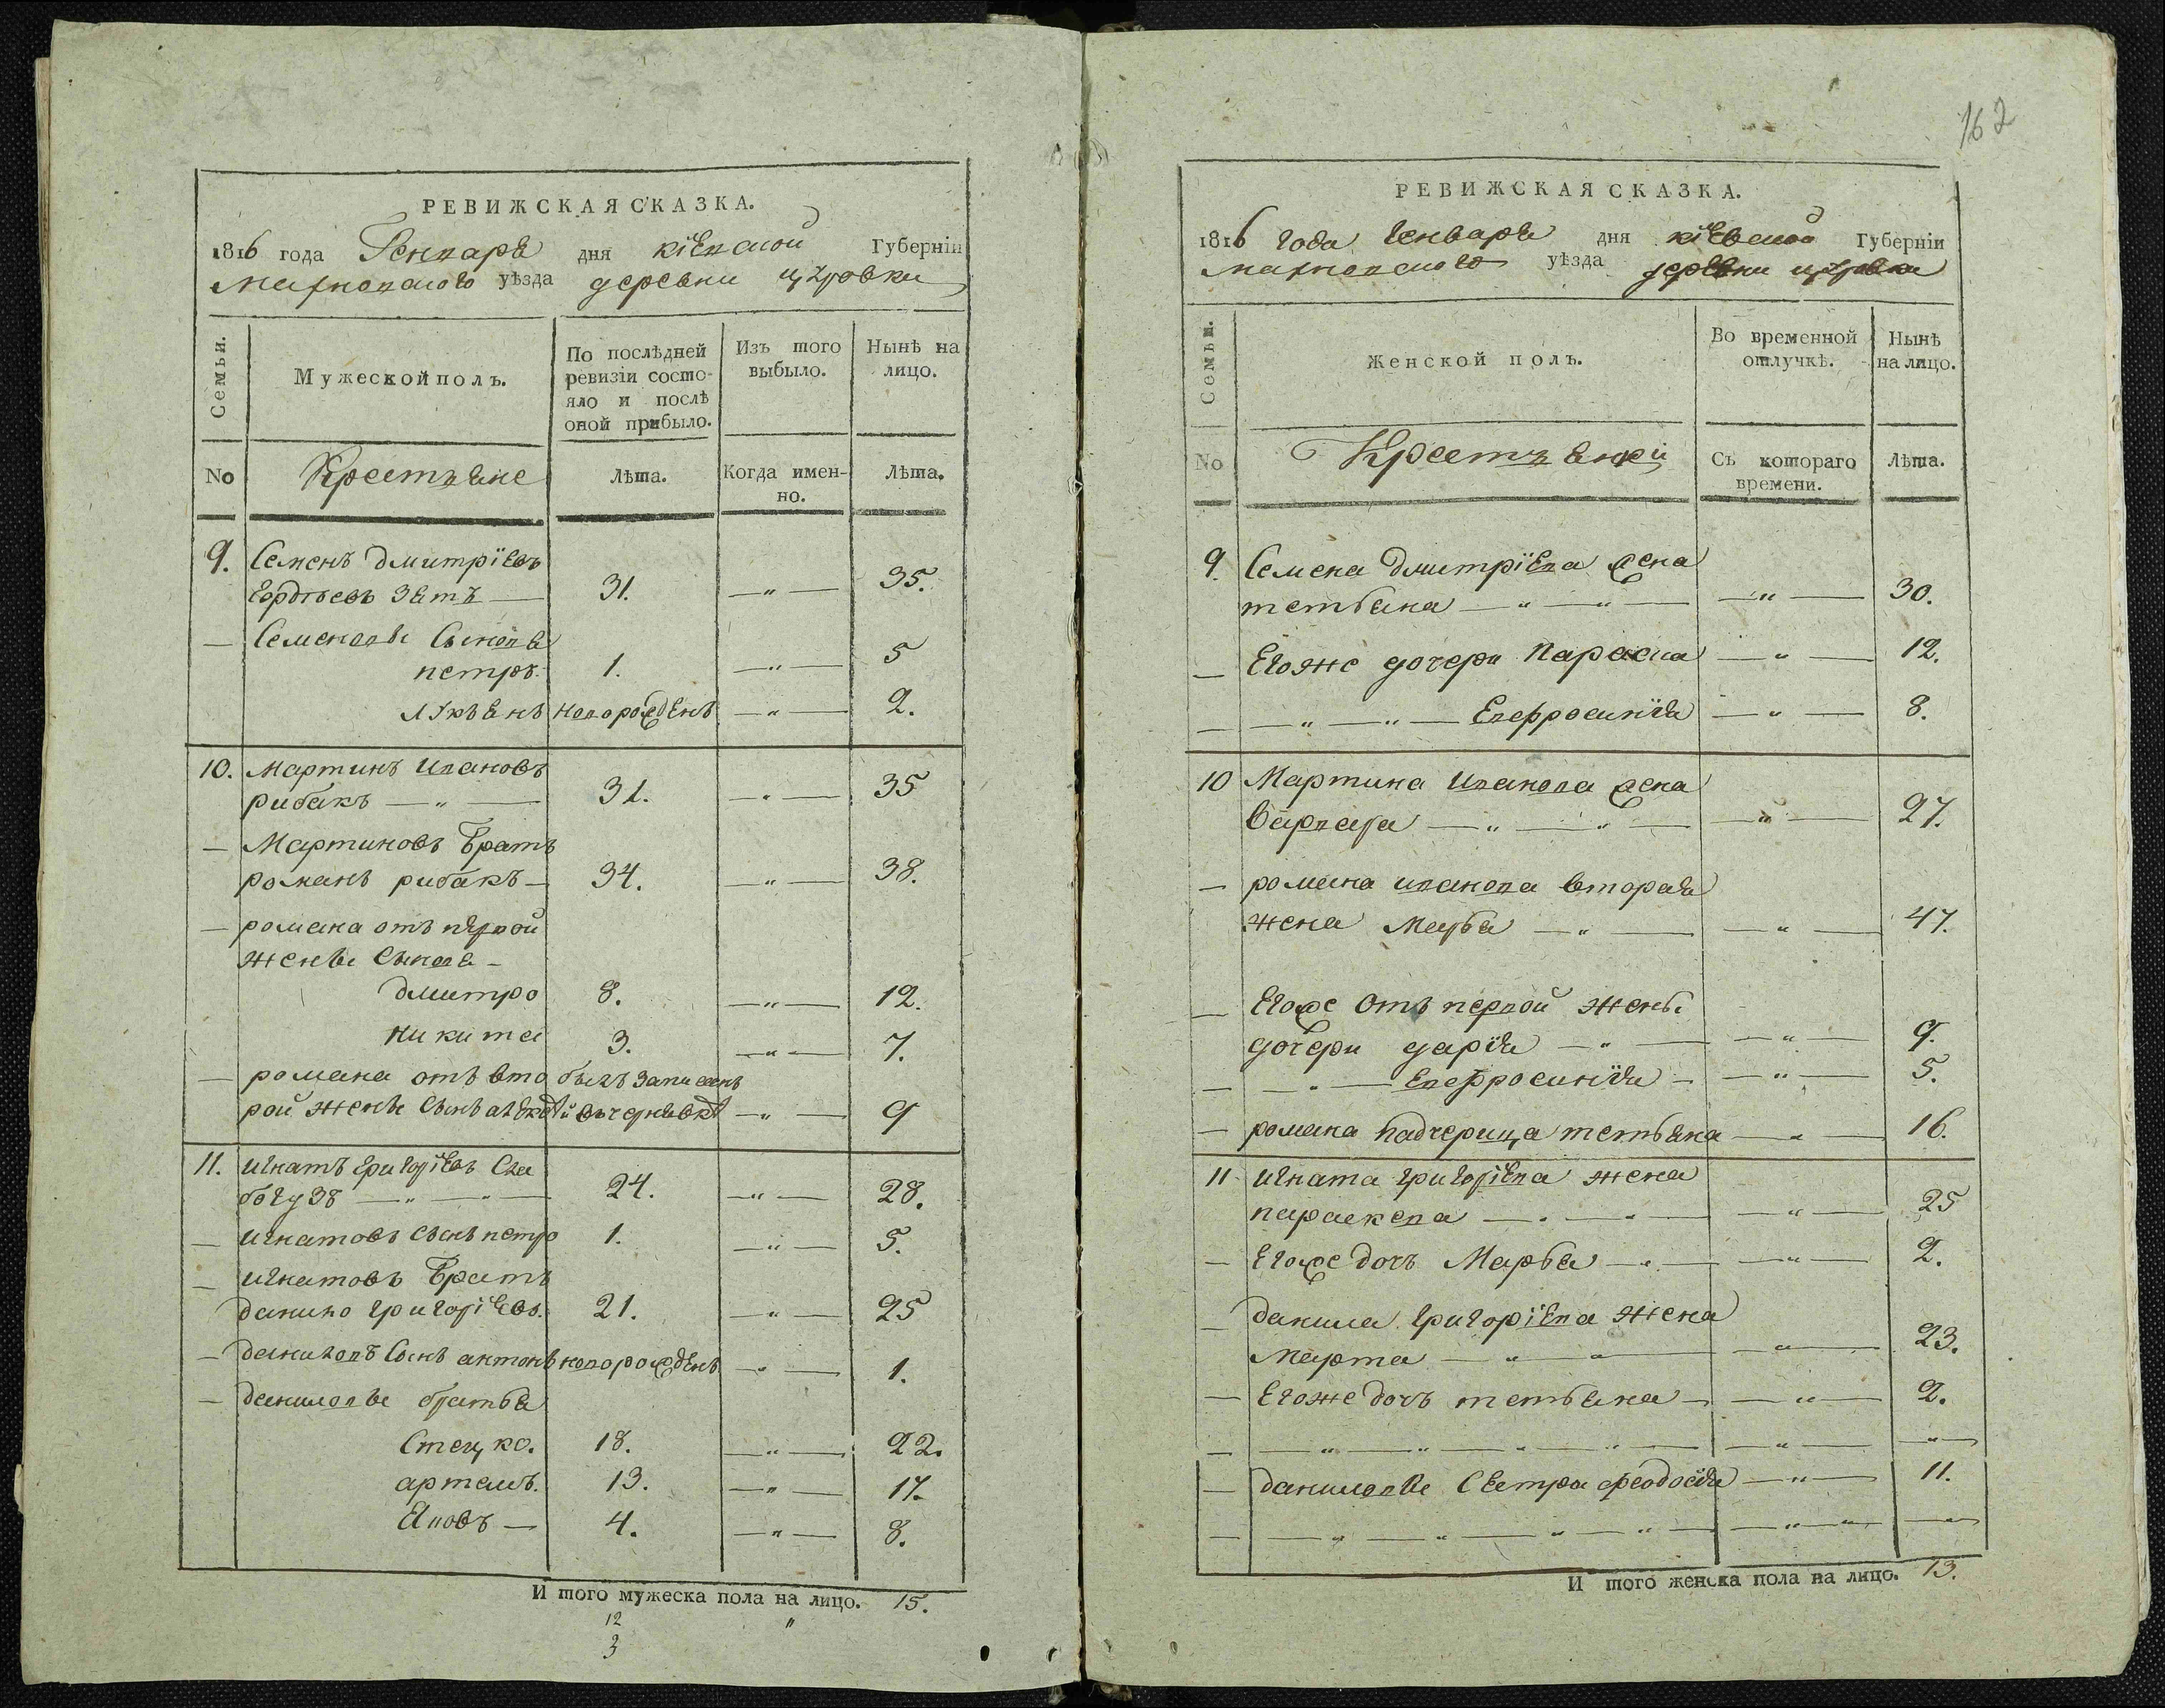 РЕВИЖСКАЯ СКАЗКА.
1816 года Генваря дня кіевской Губерніи
махновского уѣзда деревни
Семьи.
Мужеской полъ.
По послѣдней ревизіи состояло и послѣ оной прибыло.
Изъ того выбыло.
Нынѣ на лицо.
No Крестьяне Лѣта. Когда именно. Лѣта.
9. Семенъ дмитріевъ
зять — 31. — „ — 35.
— Семеновы Сыновя
петръ. 1. — „ — 5
лукьянъ новорожденъ — „ — 2.
10. Мартинъ Ивановъ
рибакъ — „ — 31. — „ — 35
— Мартиновъ Братъ
романъ рибакъ — 34. — „ — 38.
— романа отъ первой
жены Сынове —
дмитро 8. — „ — 12.
никита 3. — „ — 7.
— романа отъ вто былъ записанъ
рой жены Сынъ — „ — 9
11. игнатъ григоріевъ Сла
богузъ — „ — „ — 24. — „ — 28.
— игнатовъ сынъ петро 1. — „ — 5.
— игнатовъ Братъ
данило григоріевъ. 21. — „ — 25
— даниловъ Сынъ антонъ новорожденъ — „ — 1.
— даниловы братья
Стецко. 18. — „ — 22.
артемъ. 13. — „ — 17.
Яковъ — 4. — „ — 8.
И того мужеска пола на лицо. 15.
12 „
3
162
РЕВИЖСКАЯ СКАЗКА.
1816 года Генваря дня кіевской Губерніи
махновского уѣзда деревни
Семьи.
Женской полъ.
Во временной отлучкѣ.
Нынѣ на лицо.
No Крестьянки Съ котораго времени. Лѣта.
9. Семена дмитріева жена
тетьяна — „ — „ — — „ — 30.
— Егоже дочери Параска — „ — 12.
— — „ — „ — Евфросинія — „ — 8.
10 Мартина Иванова жена
Варвара — „ — „ — — „ — 27.
— романа иванова вторая
жена Марья — „ — — „ — 47.
— Егоже отъ первой жены
дочери дарія — „ — — „ — 9.
— — „ — Евфросинія — — „ — 5.
— романа падчерица тетьяна — „ — 16.
11 игната григоріева жена
параскева — „ — „ — — „ — 25
— Егоже дочъ Марья — „ — — „ — 2.
— данила григоріева жена
Марта — „ — „ — — „ — 23.
— Егоже дочъ тетьяна — — „ — 2.
— — „ — „ — „ — „ — — „ — — „ —
— даниловы Сестра феодосія — „ — 11.
— — „ — „ — „ — „ — — „ — „ — — „ —
И того женска пола на лицо. 13.